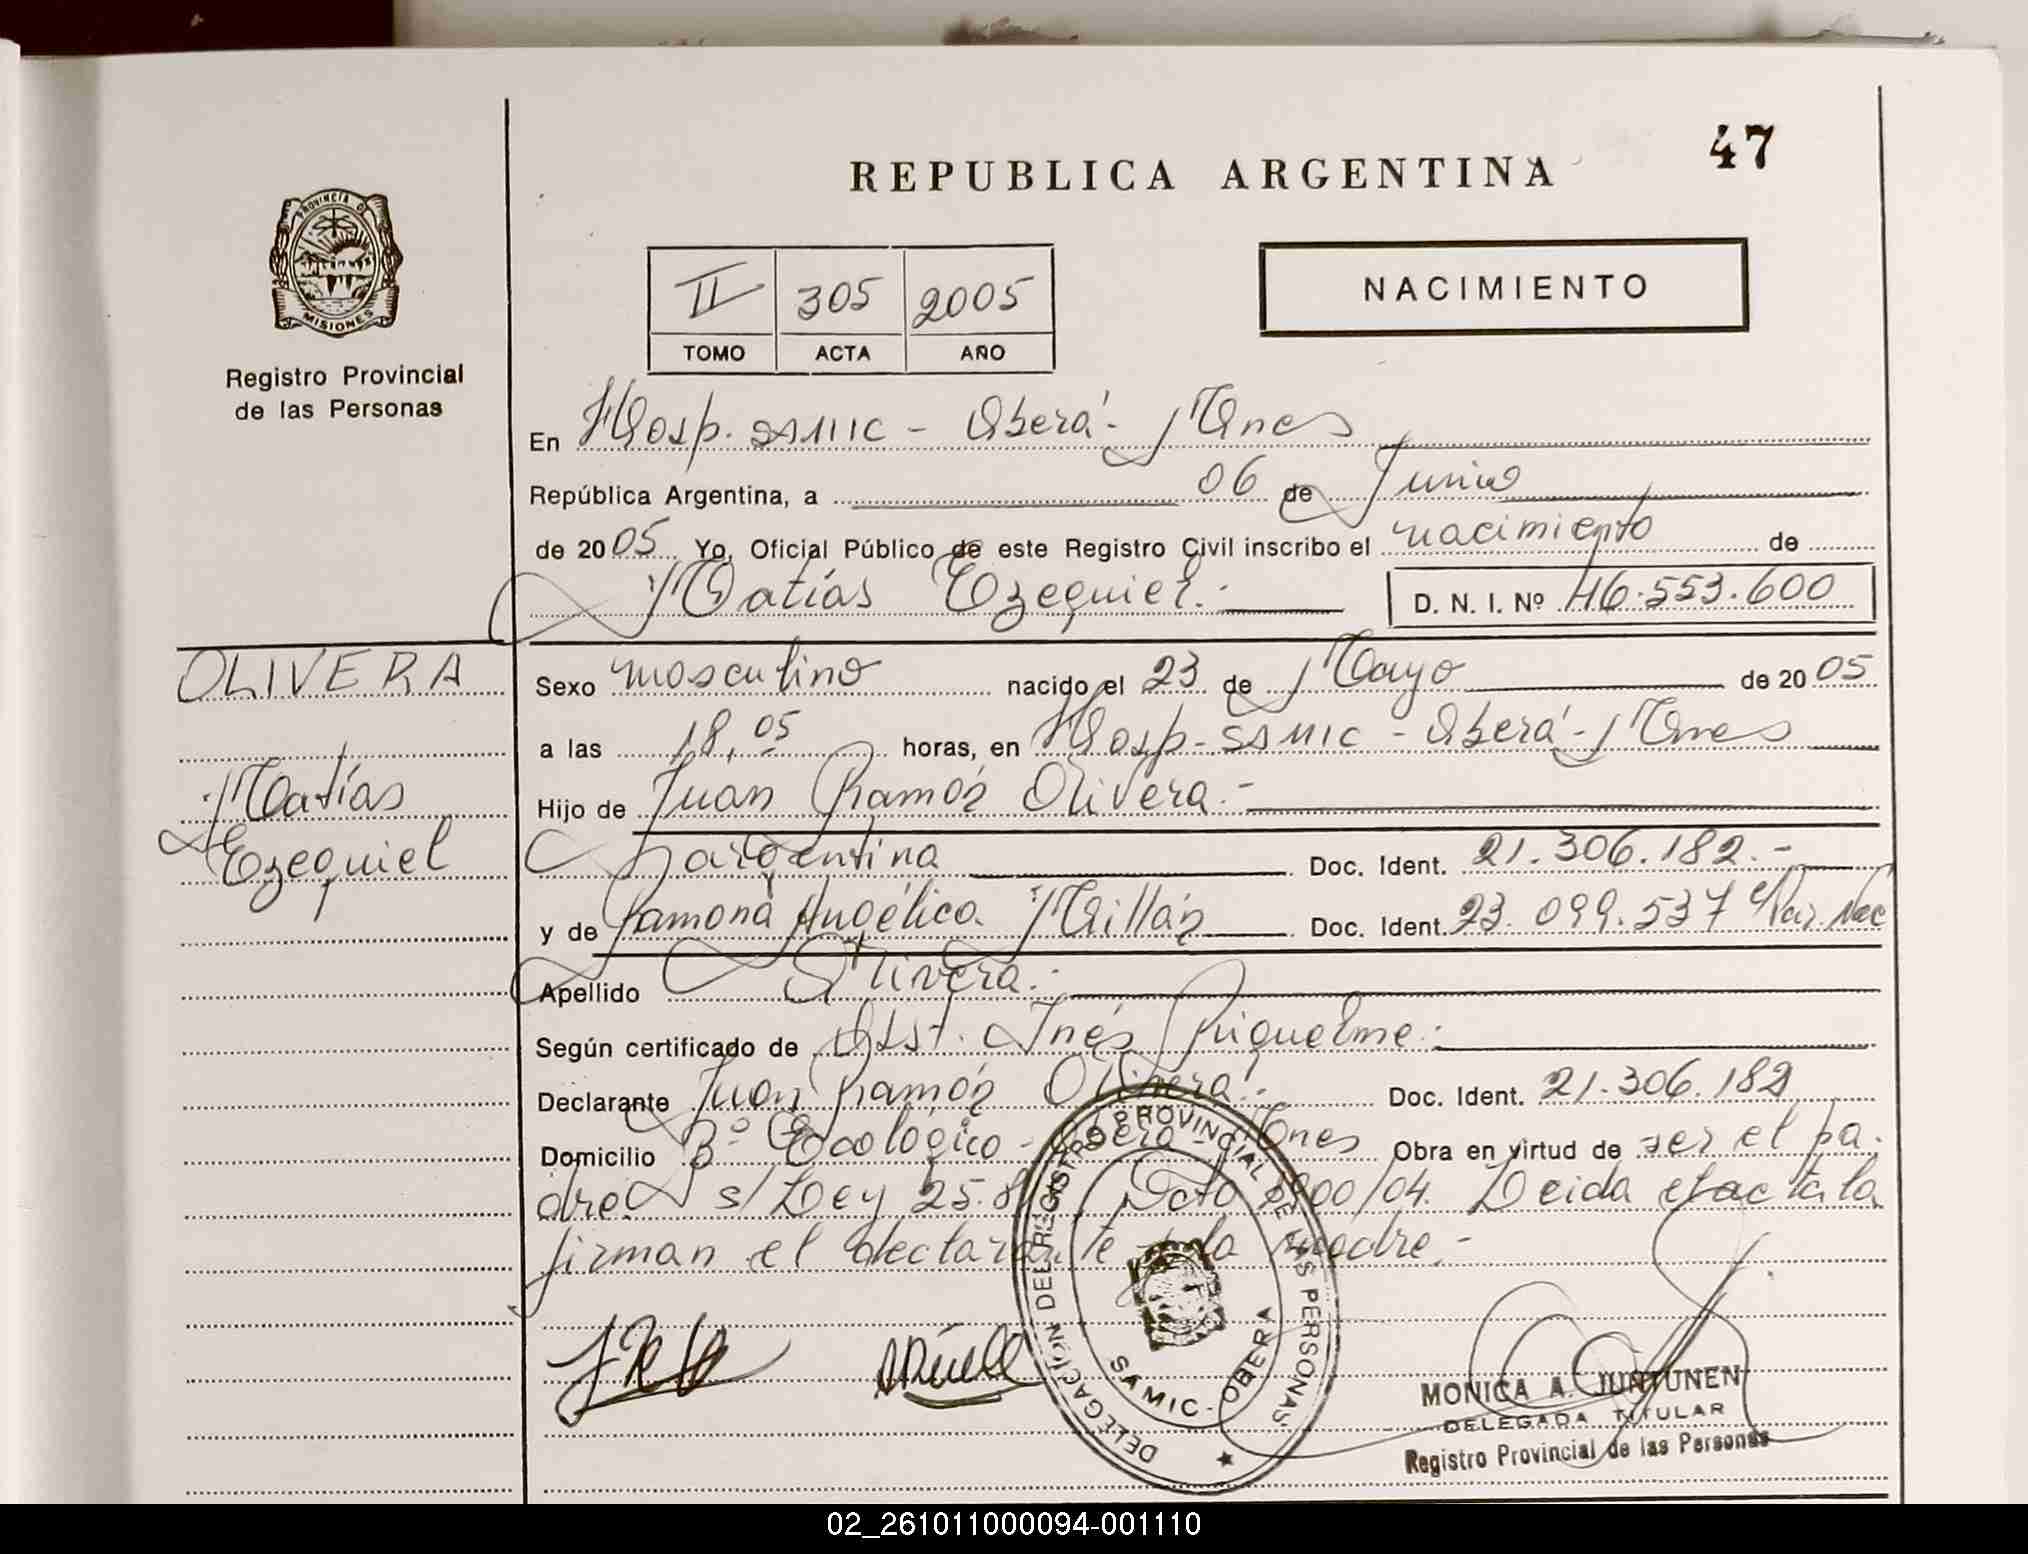 47
REPUBLICA ARGENTINA
PROVINCIA D
MISIONES
Registro Provincial
de las Personas
II 305 2005
TOMO ACTA AÑO
NACIMIENTO
En Hosp. SAMIC - Oberá - Mnes
República Argentina, a 06 de Junio
de 2005 Yo, Oficial Público de este Registro Civil inscribo el nacimiento de
Matías Ezequiel.- D. N. I. Nº 46.553.600
OLIVERA
Matías
Ezequiel
Sexo masculino nacido el 23 de Mayo de 2005
a las 18,05 horas, en Hosp-SAMIC - Oberá - Mnes
Hijo de Juan Ramón Olivera.-
argentina Doc. Ident. 21.306.182.-
y de Ramona Angélica Millán Doc. Ident. 23.099.537 Nac
Apellido Olivera.-
Según certificado de Obst. Inés Riquelme.-
Declarante Juan Ramón Olivera.- Doc. Ident. 21.306.182
Domicilio Bº Ecológico - Oberá - Mnes Obra en virtud de ser el pa-
dre. s/ Ley 25.8 Dcto 00/04. Leida el acta la
firman el declarante y la madre.-
DELEGACION DEL REGISTRO PROVINCIAL DE LAS PERSONAS
SAMIC - OBERA
MONICA A. JUNTUNEN
DELEGADA TITULAR
Registro Provincial de las Personas
02_261011000094-001110